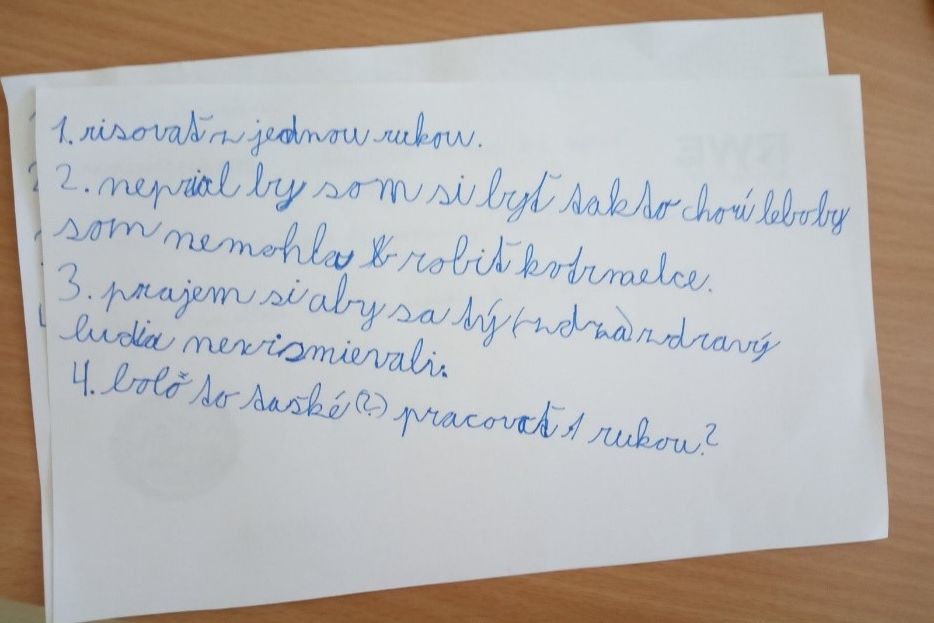 1. risovať z jednou rukou.
2. neprial by som si byť takto chorí lebo by
som nemohla robiť kotrmelce.
3. prajem si aby sa tý (zdra) zdravý
ludia nevismievali.
4. bolo to taské (?) pracovať 1 rukou?
RWE